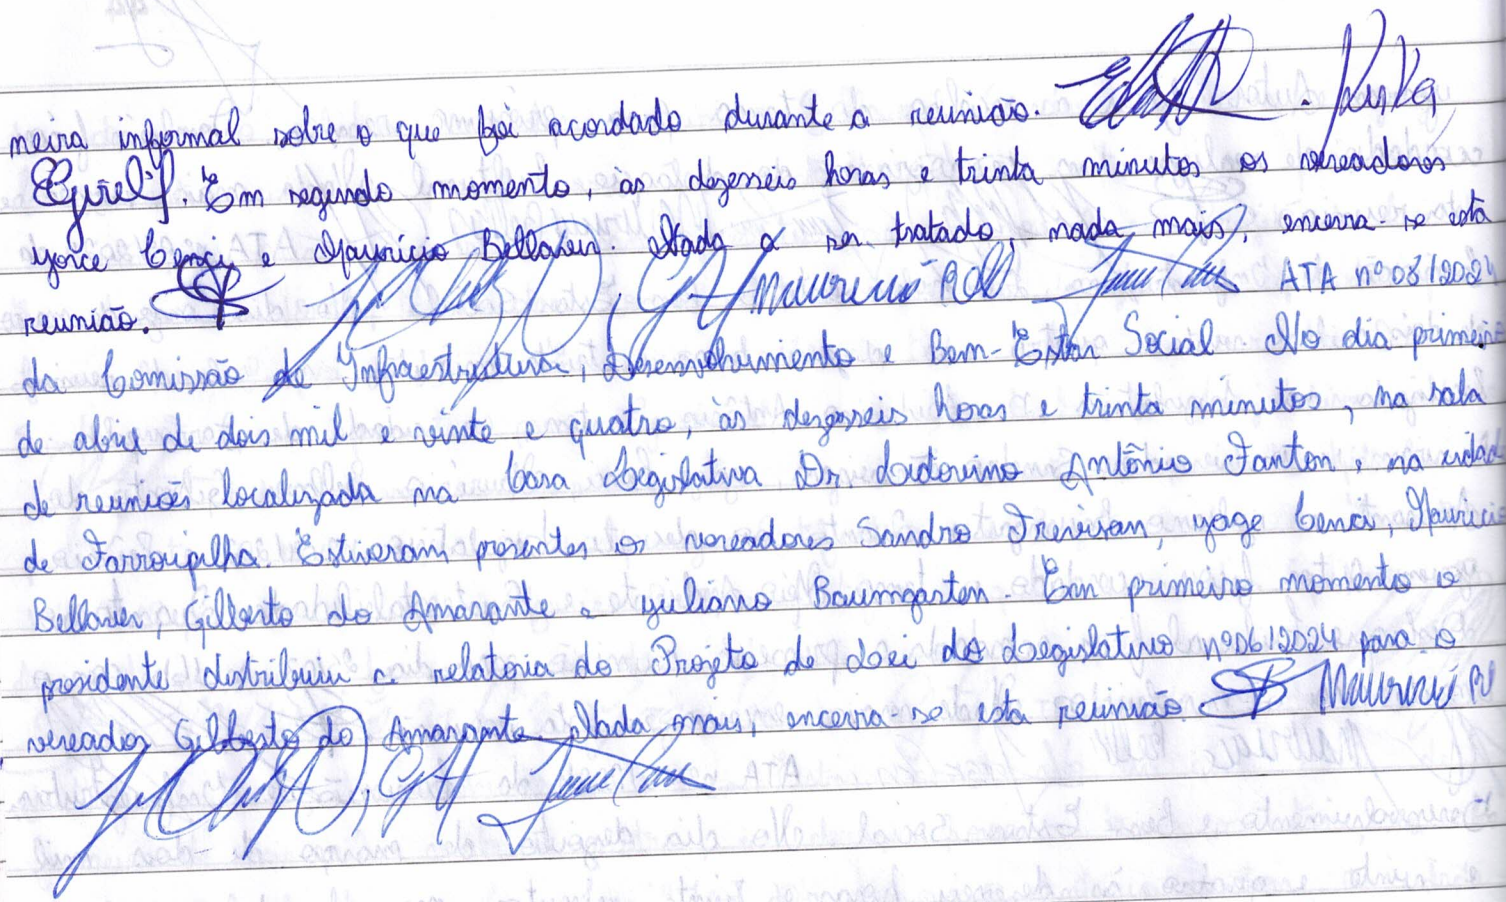 neira informal sobre o que foi acordado durante a reunião.
Em segundo momento, às dezesseis horas e trinta minutos os vereadores
yorce Cenci e Maurício Bellaver. Nada a ser tratado, nada mais, encerra-se esta
reunião. Maurício ATA nº 08/2024
da Comissão de Infraestrutura, Desenvolvimento e Bem-Estar Social No dia primeiro
de abril de dois mil e vinte e quatro, às dezesseis horas e trinta minutos, na sala
de reuniões localizada na Casa Legislativa Dr. Lidovino Antônio Fanton, na cidade
de Farroupilha. Estiveram presentes os vereadores Sandro Trevisan, yoge Cenci, Maurício
Bellaver, Gilberto do Amarante e yuliano Baumgarten. Em primeiro momento o
presidente distribuiu a relatoria do Projeto de Lei do Legislativo nº06/2024 para o
vereador Gilberto do Amarante. Nada mais, encerra-se esta reunião. Maurício